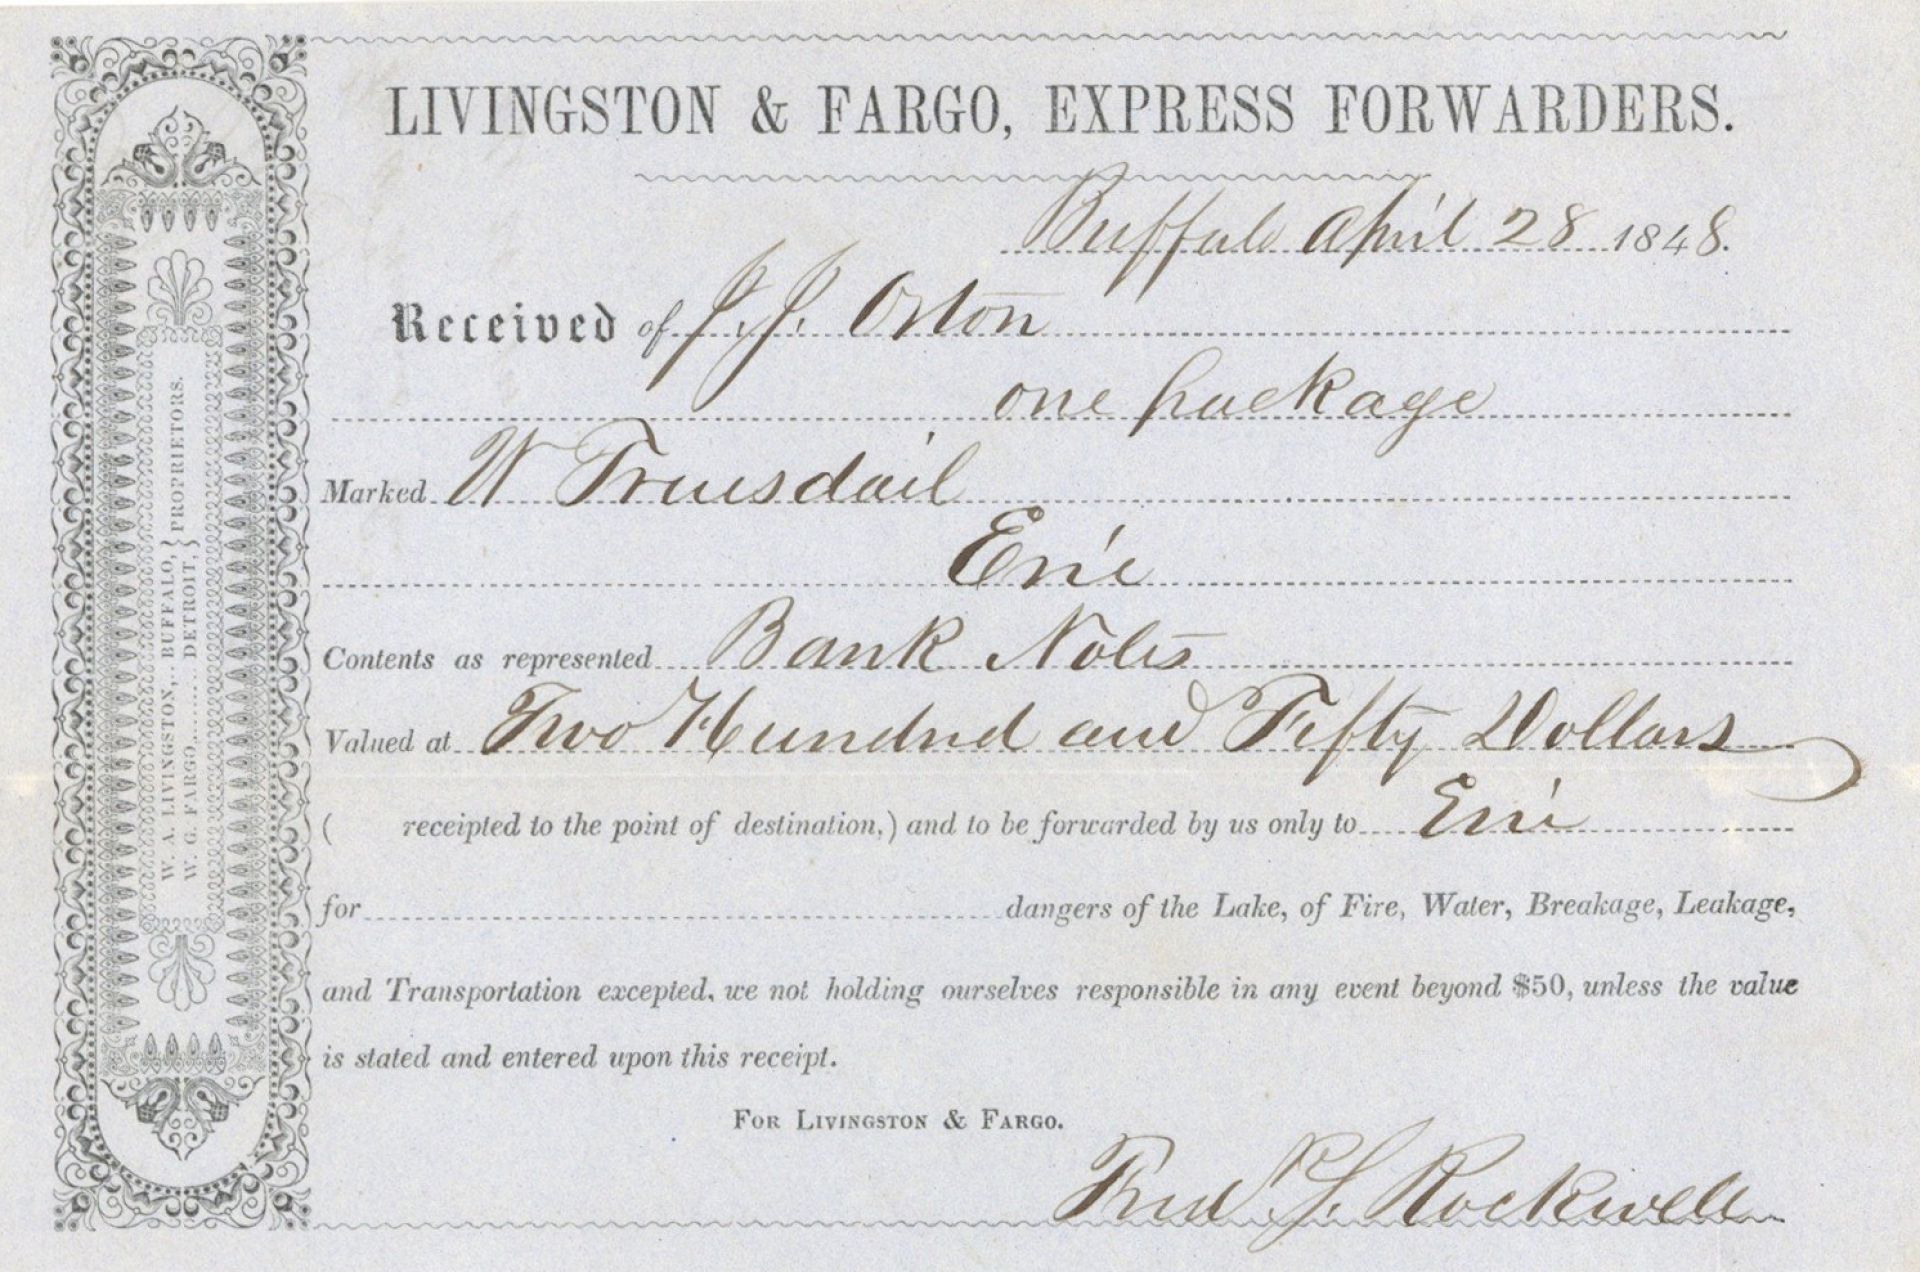 LIVINGSTON & FARGO, EXPRESS FORWARDERS.
Buffalo April 28 1848.
Received of J. J. Orton
one package
Marked W Truesdail
Erie
Contents as represented Bank Notes
Valued at Two Hundred and Fifty Dollars
( receipted to the point of destination,) and to be forwarded by us only to Erie
for dangers of the Lake, of Fire, Water, Breakage, Leakage,
and Transportation excepted, we not holding ourselves responsible in any event beyond $50, unless the value
is stated and entered upon this receipt.
FOR LIVINGSTON & FARGO.
Fred P. S. Rockwell
W. A. LIVINGSTON,.. BUFFALO, } PROPRIETORS.
W. G. FARGO,........ DETROIT, }